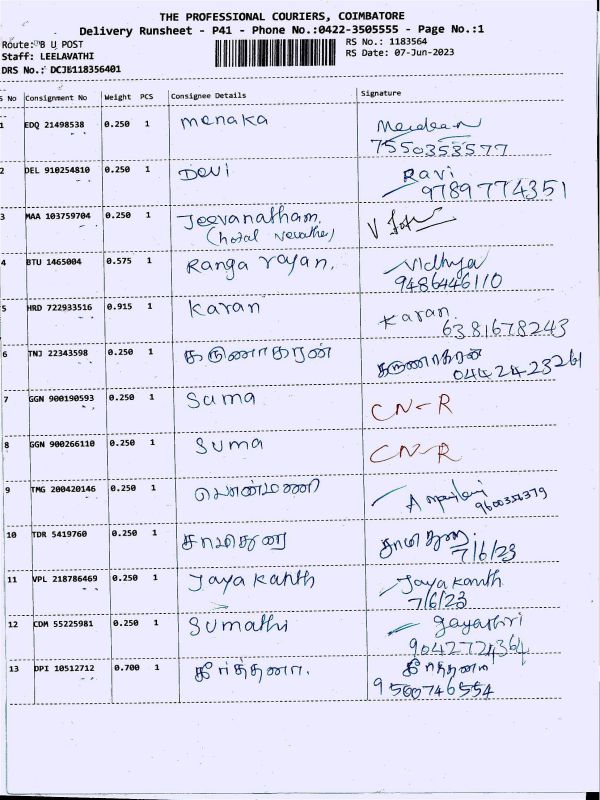 THE PROFESSIONAL COURIERS, COIMBATORE
Delivery Runsheet - P41 - Phone No.:0422-3505555 - Page No.:1
Route: B U POST
RS No.: 1183564
Staff: LEELAVATHI
RS Date: 07-Jun-2023
DRS No.: DCJE118356401
S No Consignment No Weight PCS Consignee Details Signature
1 EDQ 21498538 0.250 1 Menaka
7550353577
2 DEL 910254810 0.250 1 Devi Ravi
9789774351
3 MAA 103759704 0.250 1 Jeevanatham.
4 BTU 1465004 0.575 1 Ranga rayan. Vidhya
9486446110
5 HRD 722933516 0.915 1 Karan Karan
6381678243
6 TNJ 22343598 0.250 1 கருணாகரன் கருணாகரன்
04424-23261
7 GGN 900190593 0.250 1 Suma CN-R
8 GGN 900266110 0.250 1 Suma CN-R
9 TMG 200420146 0.250 1 பொன்மணி
9600356379
10 TDR 5419760 0.250 1 சாமிதுரை சாமிதுரை
7/6/23
11 VPL 218786469 0.250 1 Jaya Kanth Jaya Kanth
7/6/23
12 CDM 55225981 0.250 1 Sumathi gayathri
9042724364
13 DPI 10512712 0.700 1 கீர்த்தனா. கீர்த்தனா
9500746554